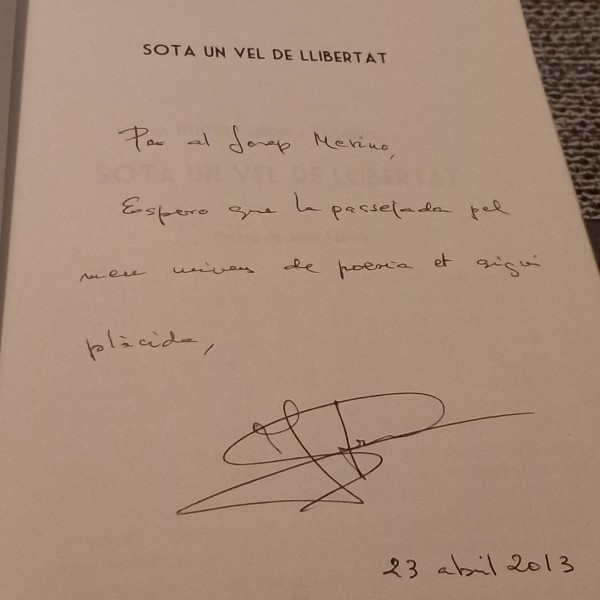 SOTA UN VEL DE LLIBERTAT
Per al Josep Merino,
SOTA UN VEL DE LLIBERTAT
Espero que la passejada pel
meu univers de poesia et sigui
plàcida,
23 abril 2013